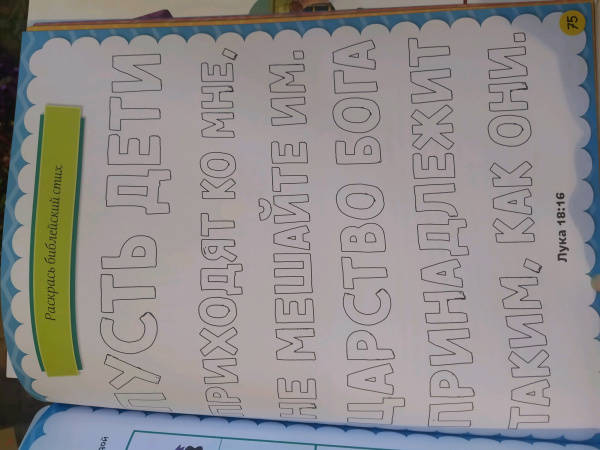 Раскрась библейский стих
ПУСТЬ ДЕТИ
ПРИХОДЯТ КО МНЕ,
НЕ МЕШАЙТЕ ИМ.
ЦАРСТВО БОГА
ПРИНАДЛЕЖИТ
ТАКИМ, КАК ОНИ.
Лука 18:16
75